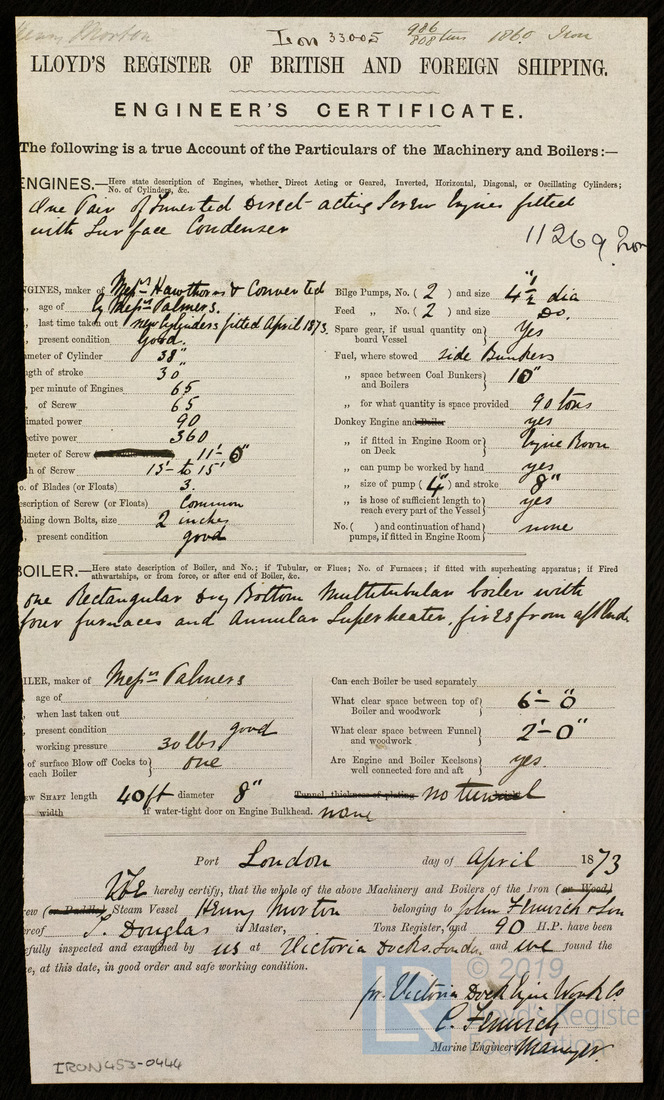 Henry Morton
Iron 33005
986
808 tons 1860 Iron
LLOYD'S REGISTER OF BRITISH AND FOREIGN SHIPPING.
ENGINEER'S CERTIFICATE.
The following is a true Account of the Particulars of the Machinery and Boilers:—
ENGINES.—Here state description of Engines, whether Direct Acting or Geared, Inverted, Horizontal, Diagonal, or Oscillating Cylinders;
No. of Cylinders, &c.
One Pair of Inverted Direct acting Screw Engines fitted
with Surface Condenser
11269 Iron
NGINES, maker of Messrs Hawthorns & Converted
„ age of by Messrs Palmers.
„ last time taken out new Cylinders fitted April 1873.
„ present condition Good.
ameter of Cylinder 38"
ngth of stroke 30"
per minute of Engines 65
„ of Screw 65
imated power 90
ective power 360
meter of Screw 11'- 6"
h of Screw 13'- to 15'
o. of Blades (or Floats) 3.
escription of Screw (or Floats) Common
olding down Bolts, size 2 inches
„ present condition good
Bilge Pumps, No. ( 2 ) and size 4 1/2" dia
Feed „ No. ( 2 ) and size Do.
Spare gear, if usual quantity on board Vessel } Yes
Fuel, where stowed side Bunkers
„ space between Coal Bunkers and Boilers } 10"
„ for what quantity is space provided 90 tons
Donkey Engine and Boiler yes
„ if fitted in Engine Room or on Deck } Engine Room
„ can pump be worked by hand yes
„ size of pump ( 4" ) and stroke 8"
„ is hose of sufficient length to reach every part of the Vessel } yes
No. ( ) and continuation of hand pumps, if fitted in Engine Room } none
BOILER.—Here state description of Boiler, and No.; if Tubular, or Flues; No. of Furnaces; if fitted with superheating apparatus; if Fired
athwartships, or from force, or after end of Boiler, &c.
one Rectangular Dry Bottom Multitubular boiler with
four furnaces and Annular Superheater, fires from aft end
ILER, maker of Messrs Palmers
„ age of
„ when last taken out
present condition good
„ working pressure 30 lbs
of surface Blow off Cocks to each Boiler } one
Can each Boiler be used separately
What clear space between top of Boiler and woodwork } 6'- 0"
What clear space between Funnel and woodwork } 2'- 0"
Are Engine and Boiler Keelsons well connected fore and aft } yes.
ew SHAFT length 40 ft diameter 8" Tunnel, thickness of plating no tunnel
width if water-tight door on Engine Bulkhead. none
Port London day of April 1873
We hereby certify, that the whole of the above Machinery and Boilers of the Iron (or Wood)
rew (or Paddle) Steam Vessel Henry Morton belonging to John Fenwick & Son
ereof S. Douglas is Master, Tons Register, and 90 H.P. have been
efully inspected and examined by us at Victoria Docks. London and we found the
e, at this date, in good order and safe working condition.
for Victoria Dock Engine Works Co
C. Fenwick
Marine Engineers Manager.
IRON453-0444
LR
© 2019
Lloyd's Register
Foundation